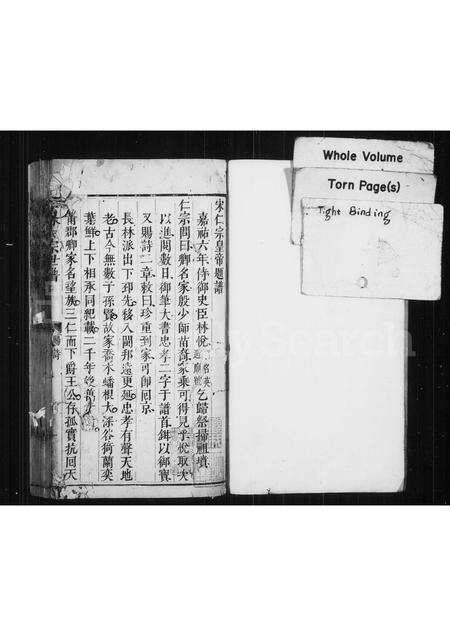 Whole Volume
Torn Page(s)
Tight Binding
宋仁宗皇帝題譜
嘉祐六年侍御史臣林悅乞歸祭掃祖墳
仁宗問曰卿名家殷少師苗裔家乘可得見乎悅取次
以進閱數日御筆大書忠孝二字于譜首鈐以御寶
又賜詩二章敕曰珍重到家可師回京
長林派出下邳先後入閩邦遠更延忠孝有聲天地
老古今無數子孫賢故家喬木蟠根大深谷荷蘭奕
葉鮮上下相承同紀載二千年
郡卿家名望族三仁而下爵王公存孤實抗回天